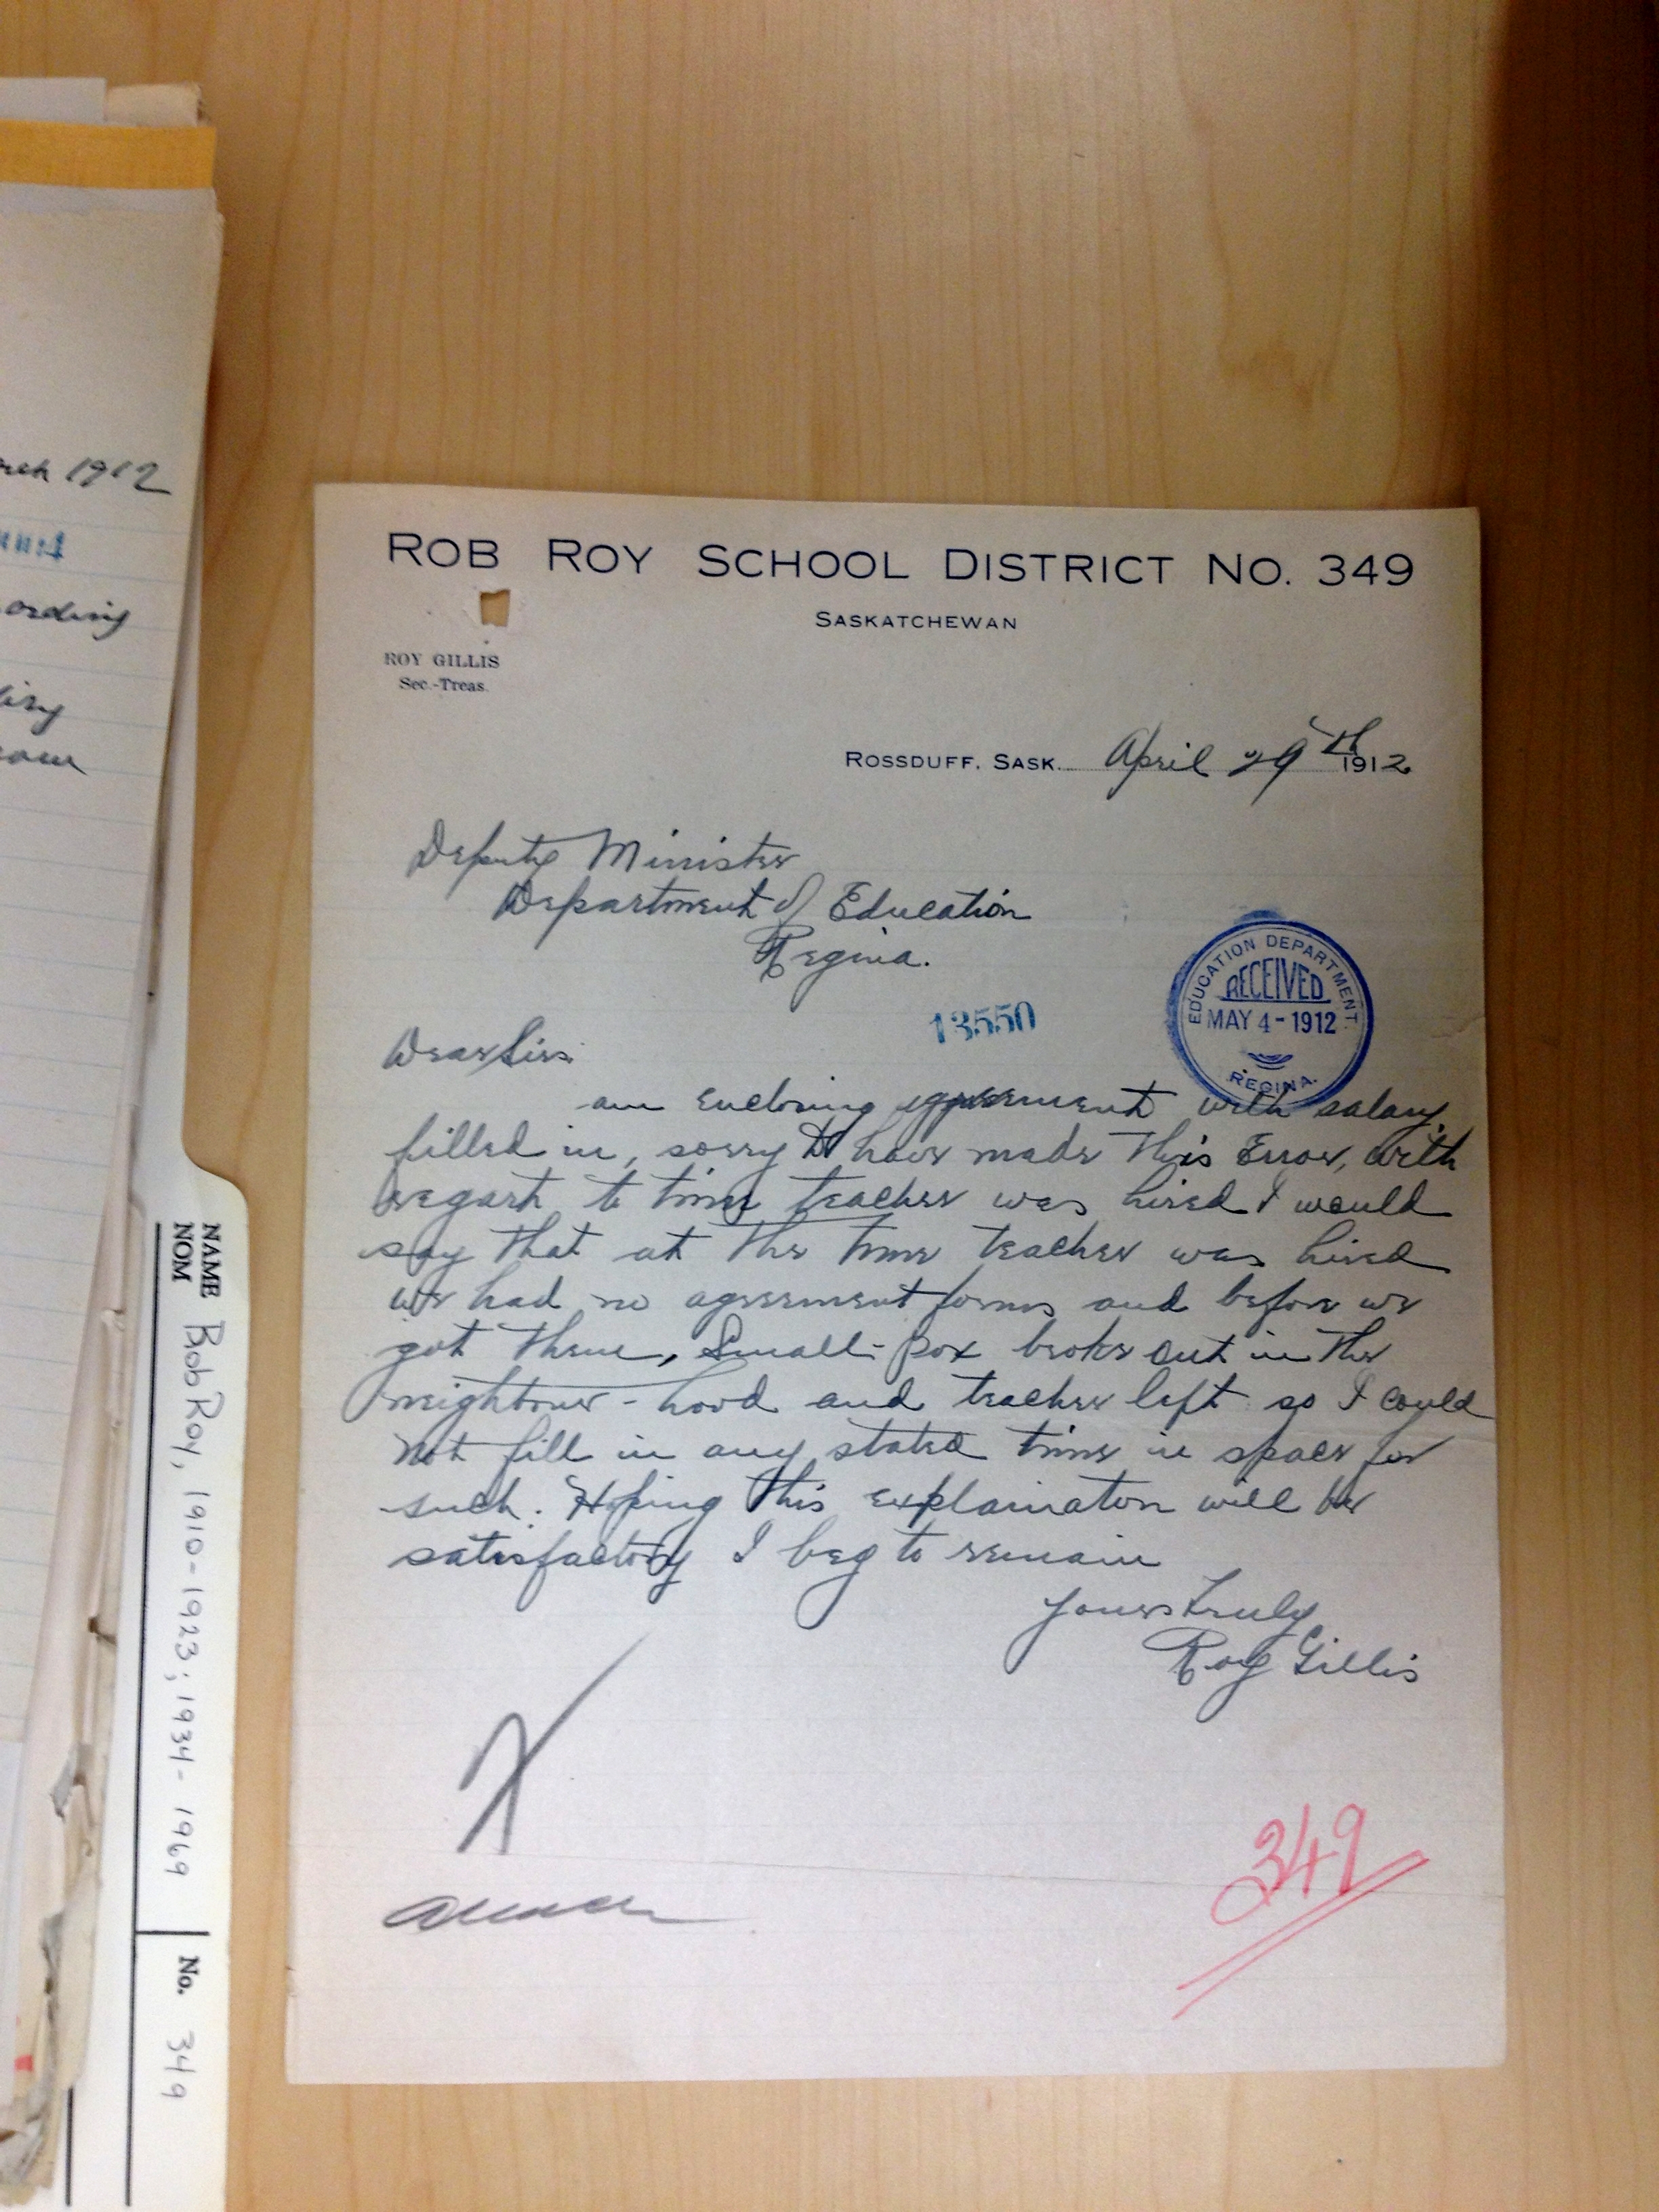 rch 1912
ording
ROB ROY SCHOOL DISTRICT NO. 349
SASKATCHEWAN
ROY GILLIS
Sec.-Treas.
ROSSDUFF, SASK. April 29th 1912
Deputy Minister
Department of Education
Regina.
EDUCATION DEPARTMENT
RECEIVED
MAY 4-1912
REGINA.
13550
Dear Sir:
am enclosing agreement with salary
filled in, sorry to have made this Error, with
regard to time teacher was hired I would
say that at the time teacher was hired
we had no agreement forms and before we
got them, Small-pox broke out in the
neighbour-hood and teacher left so I could
not fill in any stated time in space for
such. Hoping this explaination will be
satisfactory I beg to remain
Yours truly
Roy Gillis
349
NAME
NOM
Rob Roy, 1910-1923; 1934-1969
No. 349